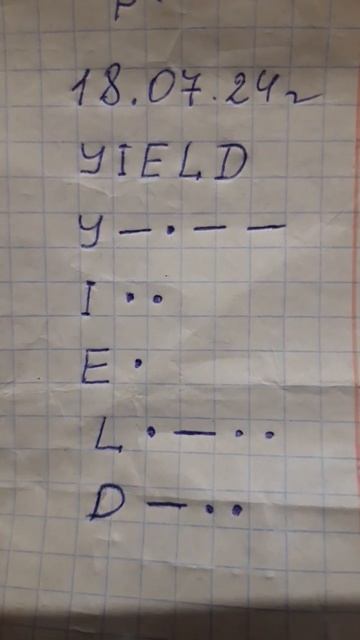 18.07.24г
YIELD
Y — • — —
I • •
E •
L • — • •
D — • •